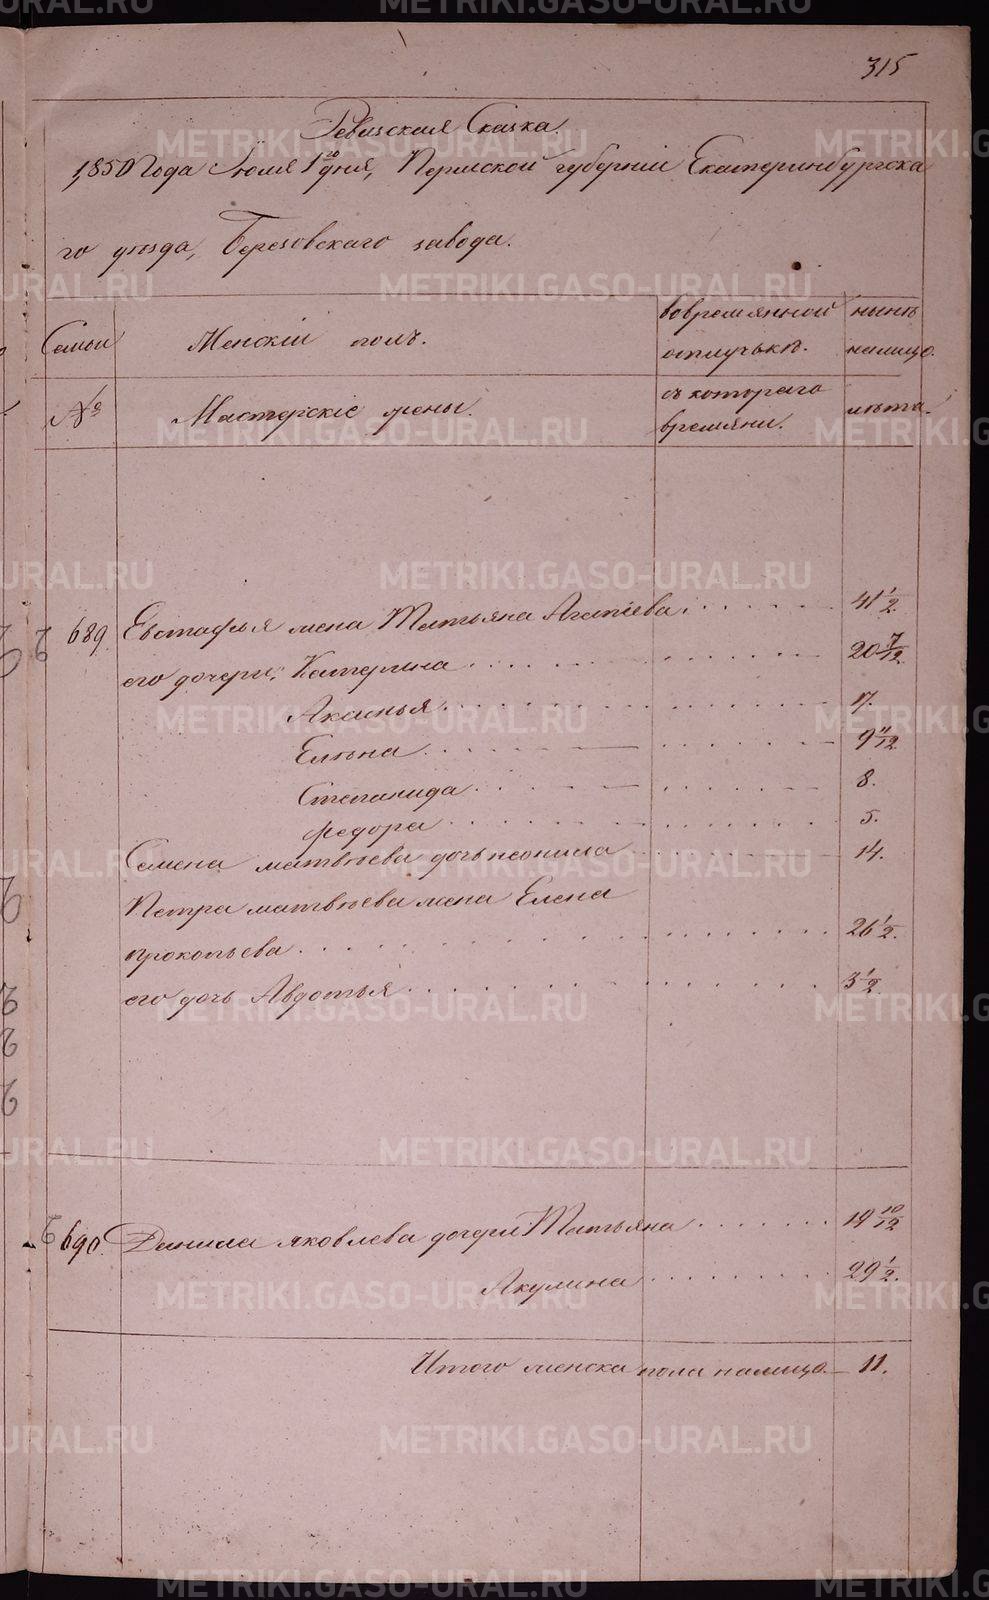 315
Ревизская Сказка.
1850 Года Июля 1го дня, Пермской губернiи Екатеринбургска
го уѣзда, Березовскаго завода.
Семьи Женскiй полъ. вовремянной нынѣ
отлучькѣ. налицо.
№ Мастерскiе жены. съ котораго лѣта.
времяни.
689. Евстафья жена Татьяна Агапiева 41 1/2.
его дочери; Катерина 20 7/12.
Аксинья 17.
Елѣна 9 11/12
Степанида 8.
Федора 5.
Семена матвѣева дочь неонила 14.
Петра матвѣева жена Елена
прокопьева 26 1/2.
его дочь Авдотья 3 1/2
690. Данила яковлева дочери Татьяна 19 10/12
Акулина 29 1/2.
Итого женска пола налицо. 11.
METRIKI.GASO-URAL.RU